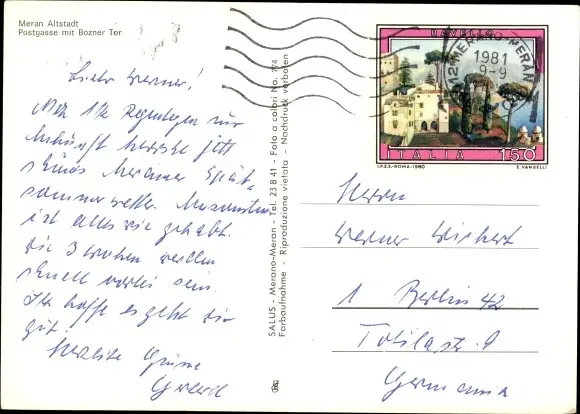 Meran Altstadt
Postgasse mit Bozner Tor
Lieber Werner!
Nach 1½ Regentagen zur
Ankunft herrscht jetzt
schönes Meraner Spät-
sommerwetter. Ansonsten
ist alles wie gehabt.
Die 3 Wochen werden
schnell vorbei sein.
Ich hoffe es geht dir
gut.
Herzliche Grüsse
SALUS - Merano-Meran - Tel. 23 8 41 - Foto a colori No. 774
Farbaufnahme - Riproduzione vietata - Nachdruck verboten
RAVELLO
MERANO-MERAN
1981
9-9
ITALIA 150
I.P.Z.S.-ROMA-1980 E. VANGELLI
Herrn
Werner
1 Berlin 42
Totilastr. 9
Germania